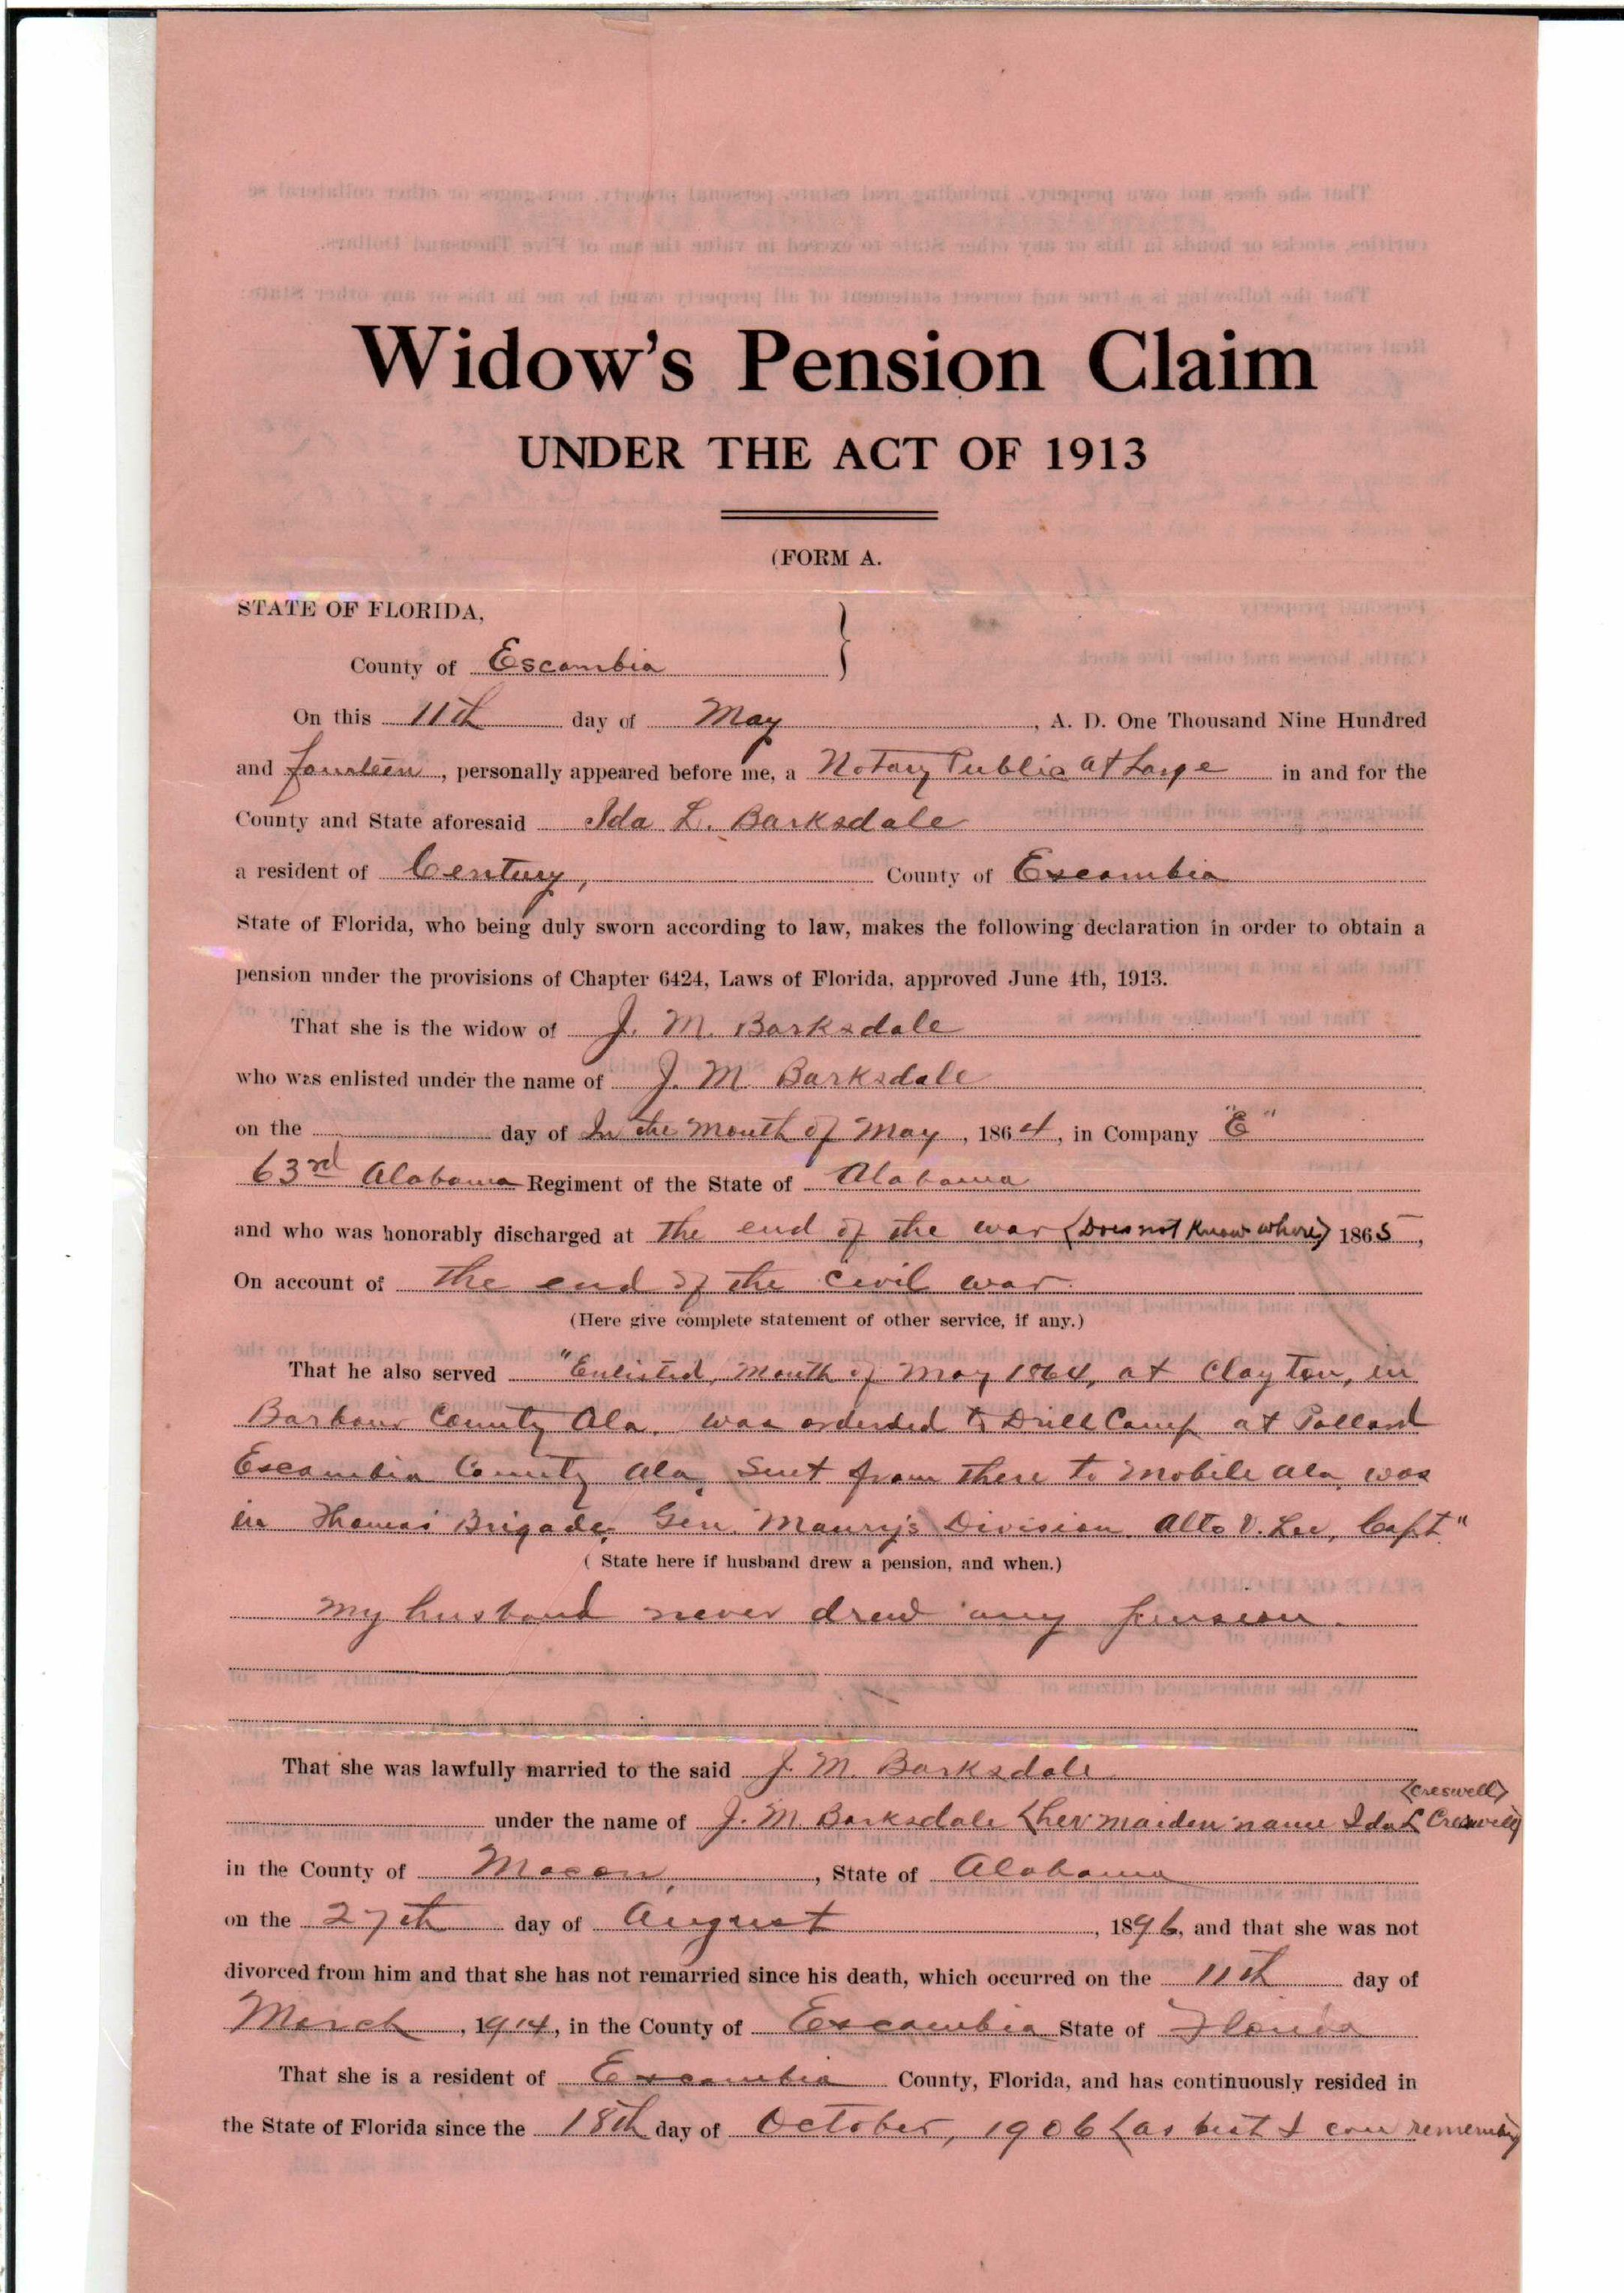 Widow's Pension Claim
UNDER THE ACT OF 1913
(FORM A.
STATE OF FLORIDA,
County of Escambia
On this 11th day of May, A. D. One Thousand Nine Hundred
and fourteen, personally appeared before me, a Notary Public at Large in and for the
County and State aforesaid Ida L. Barksdale
a resident of Century, County of Escambia
State of Florida, who being duly sworn according to law, makes the following declaration in order to obtain a
pension under the provisions of Chapter 6424, Laws of Florida, approved June 4th, 1913.
That she is the widow of J. M. Barksdale
who was enlisted under the name of J. M. Barksdale
on the day of In the month of May, 1864, in Company "E"
63rd Alabama Regiment of the State of Alabama
and who was honorably discharged at the end of the war (Does not know where) 1865,
On account of the end of the civil war.
(Here give complete statement of other service, if any.)
That he also served "Enlisted, month of May 1864, at Clayton, in
Barbour County Ala. was ordered to Drill Camp at Pollard
Escambia County Ala. Sent from there to Mobile Ala was
in Thomas Brigade, Gen. Maury's Division. Alto V. Lee, Capt"
( State here if husband drew a pension, and when.)
my husband never drew any pension.
That she was lawfully married to the said J. M. Barksdale
(Creswell)
under the name of J. M. Barksdale (her maiden name Ida L Creswell)
in the County of Macon, State of Alabama
on the 27th day of August, 1896, and that she was not
divorced from him and that she has not remarried since his death, which occurred on the 11th day of
March, 1914, in the County of Escambia State of Florida
That she is a resident of Escambia County, Florida, and has continuously resided in
the State of Florida since the 18th day of October, 1906 (as best I can remember)